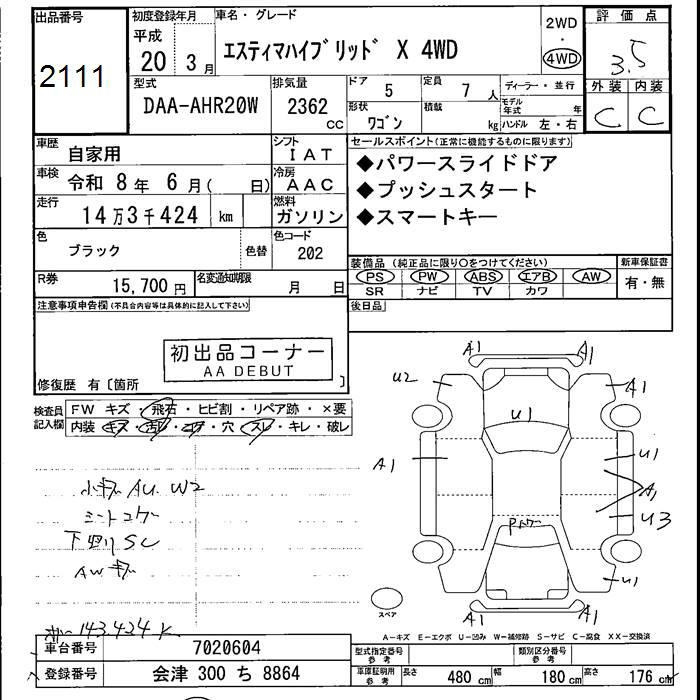 出品番号 2111
初度登録年月 平成 20 3月
車名・グレード エスティマハイブリッド X 4WD
2WD ・ 4WD
評価点 3.5
外装 C 内装 C
型式 DAA-AHR20W
排気量 2362 CC
ドア 5 定員 7人 ディーラー・並行
形状 ワゴン 積載 kg モデル年式 年
ハンドル 左・右
車歴 自家用
シフト IAT
車検 令和 8年 6月( 日)
冷房 AAC
走行 14万3千424 km
燃料 ガソリン
色 ブラック 色替
色コード 202
R券 15,700円
名変通知期限 月 日
セールスポイント(正常に機能するものに限ります)
◆パワースライドドア
◆プッシュスタート
◆スマートキー
装備品(純正品に限り○をつけてください) 新車保証書
PS PW ABS エアB AW 有・無
SR ナビ TV カワ
後日品
注意事項申告欄(不具合内容等は具体的に記入して下さい)
初出品コーナー
AA DEBUT
修復歴 有〔箇所 〕
検査員記入欄
FW キズ・飛石・ヒビ割・リペア跡・×要
内装 キズ・汚レ・コゲ・穴・スレ・キレ・破レ
小キズ AU W2
シートコゲ
下回りSC
AWキズ
143.424K
A1 A1
U2 A1
U1
A1 U1
A1
U3
U1
A1 A1
スペア
A-キズ E-エクボ U-凹み W-補修跡 S-サビ C-腐食 XX-交換済
車台番号 7020604
型式指定番号 参考 類別区分番号 参考
登録番号 会津 300 ち 8864
車庫証明用 参考 長さ 480 cm 幅 180 cm 高さ 176 cm